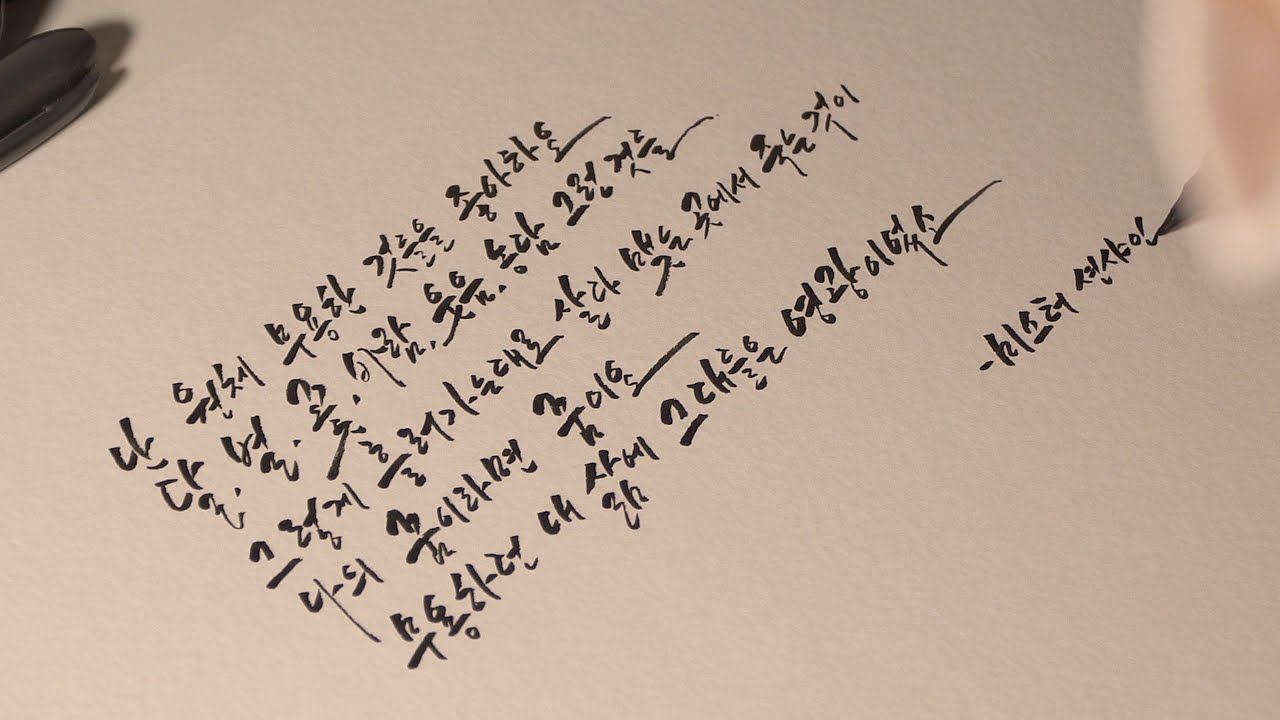 난 원체 무용한 것들을 좋아하오
달. 별. 꽃. 바람. 웃음. 농담 그런 것들
그렇게 흘러가는대로 살다 멎는 곳에서 죽는것이
나의 꿈이라면 꿈이오
무용하던 내 삶에 그대들은 영광이었소
-미스터 션샤인